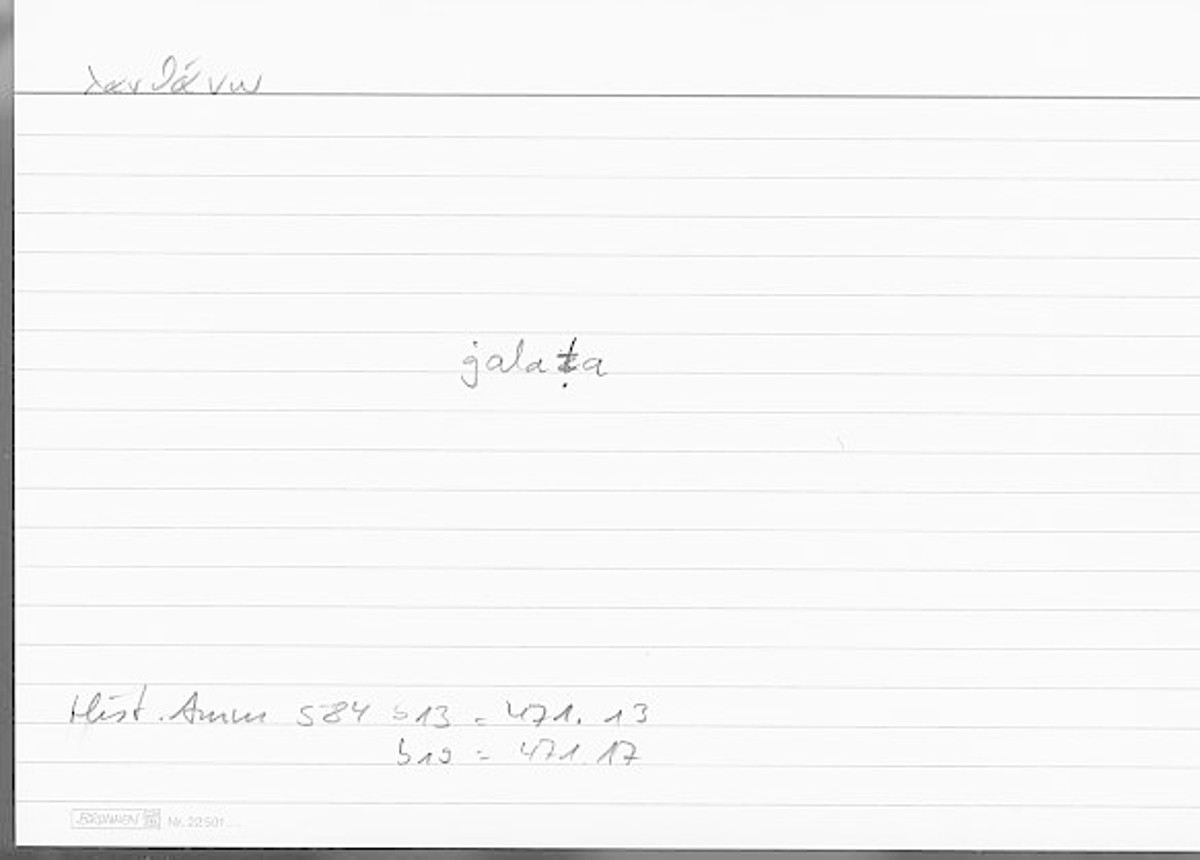 λανθάνω
ġalaṭa
Hist. Anim 584 b13 = 471.13
b19 = 471.17
BRUNNEN Nr. 22501